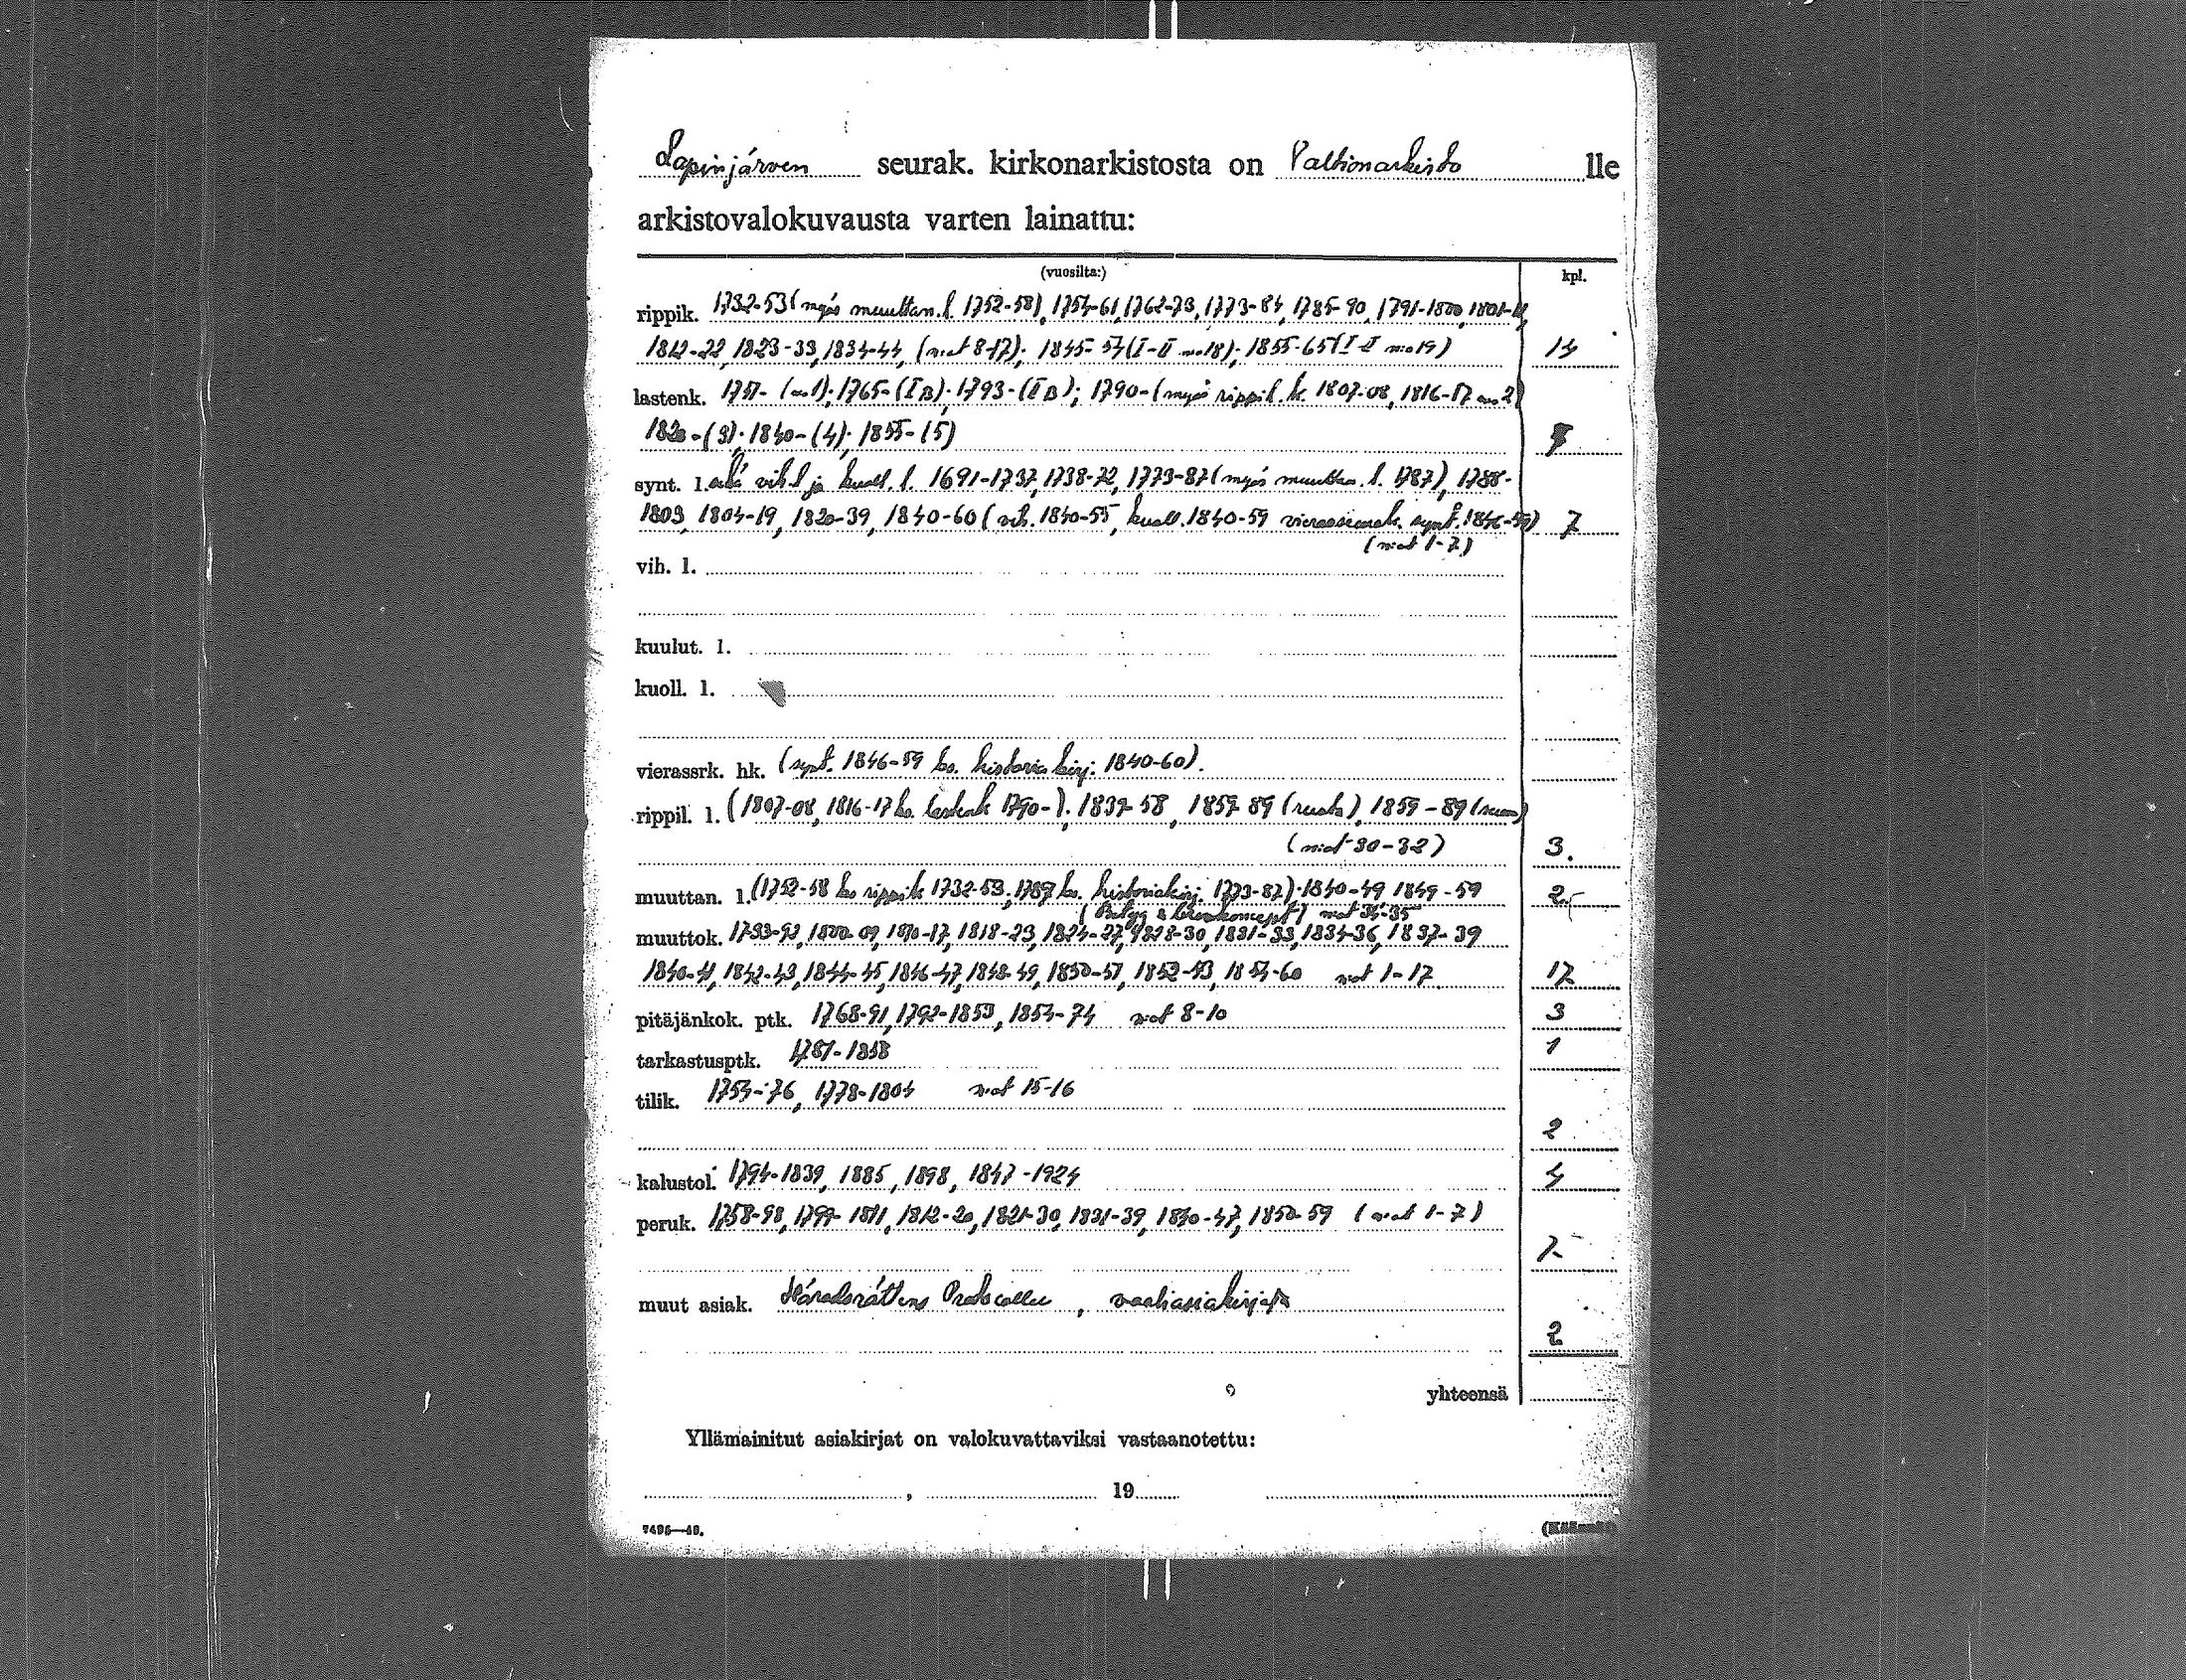 Lapinjärven seurak. kirkonarkistosta on Valtionarkisto lle
arkistovalokuvausta varten lainattu:
(vuosilta:) kpl.
rippik. 1732-53 (myös muuttan. l. 1752-58), 1754-61, 1762-73, 1773-84, 1785-90, 1791-1800, 1801-11,
1812-22, 1823-33, 1834-44, (n:ot 8-17); 1845-54 (I-II n:o 18); 1855-65 (I-II n:o 19) 14
lastenk. 1751- (n:o 1); 1765- (I B); 1793- (II B); 1790- (myös rippil. k. 1807-08, 1816-17 n:o 2)
1820- (3); 1840- (4); 1855- (5)
synt. l. sekä vih. l ja kuoll. l. 1691-1737, 1738-72, 1773-87 (myös muuttan. l. 1787), 1788-
1803, 1804-19, 1820-39, 1840-60 (vih. 1840-55, kuoll. 1840-59 vierasseurak. synt. 1846-59) 7
(n:ot 1-7)
vih. l.
kuulut. l.
kuoll. l.
vierassrk. hk. (synt. 1846-59 ks. historiakirj. 1840-60).
rippil. l. (1807-08, 1816-17 ks. lastenk 1790-); 1837-58, 1859-89 (ruots), 1859-89 (suom)
(n:ot 30-32) 3.
muuttan. l. (1752-58 ks rippik 1732-53; 1787 ks. historiakirj. 1773-87); 1840-49 1849-59 2
n:ot 34-35
muuttok. 1800-09, 1810-17, 1818-23, 1824-27, 1828-30, 1831-33, 1834-36, 1837-39
1840-41, 1842-43, 1844-45, 1846-47, 1848-49, 1850-51, 1852-53, 1854-60 n:ot 1-17 17
pitäjänkok. ptk. 1768-91, 1792-1853, 1854-74 n:ot 8-10 3
tarkastusptk. 1781-1858 1
tilik. 1754-76, 1778-1804 n:ot 15-16
2
kalustol. 1794-1839, 1885, 1898, 1847-1924 4
peruk. 1758-98, 1799-1811, 1812-20, 1821-30, 1831-39, 1840-47, 1850-59 (n:ot 1-7)
7
muut asiak. Häradsrättens Protocoller, vaaliasiakirjoja
2
yhteensä
Yllämainitut asiakirjat on valokuvattaviksi vastaanotettu:
, 19
7495—49.